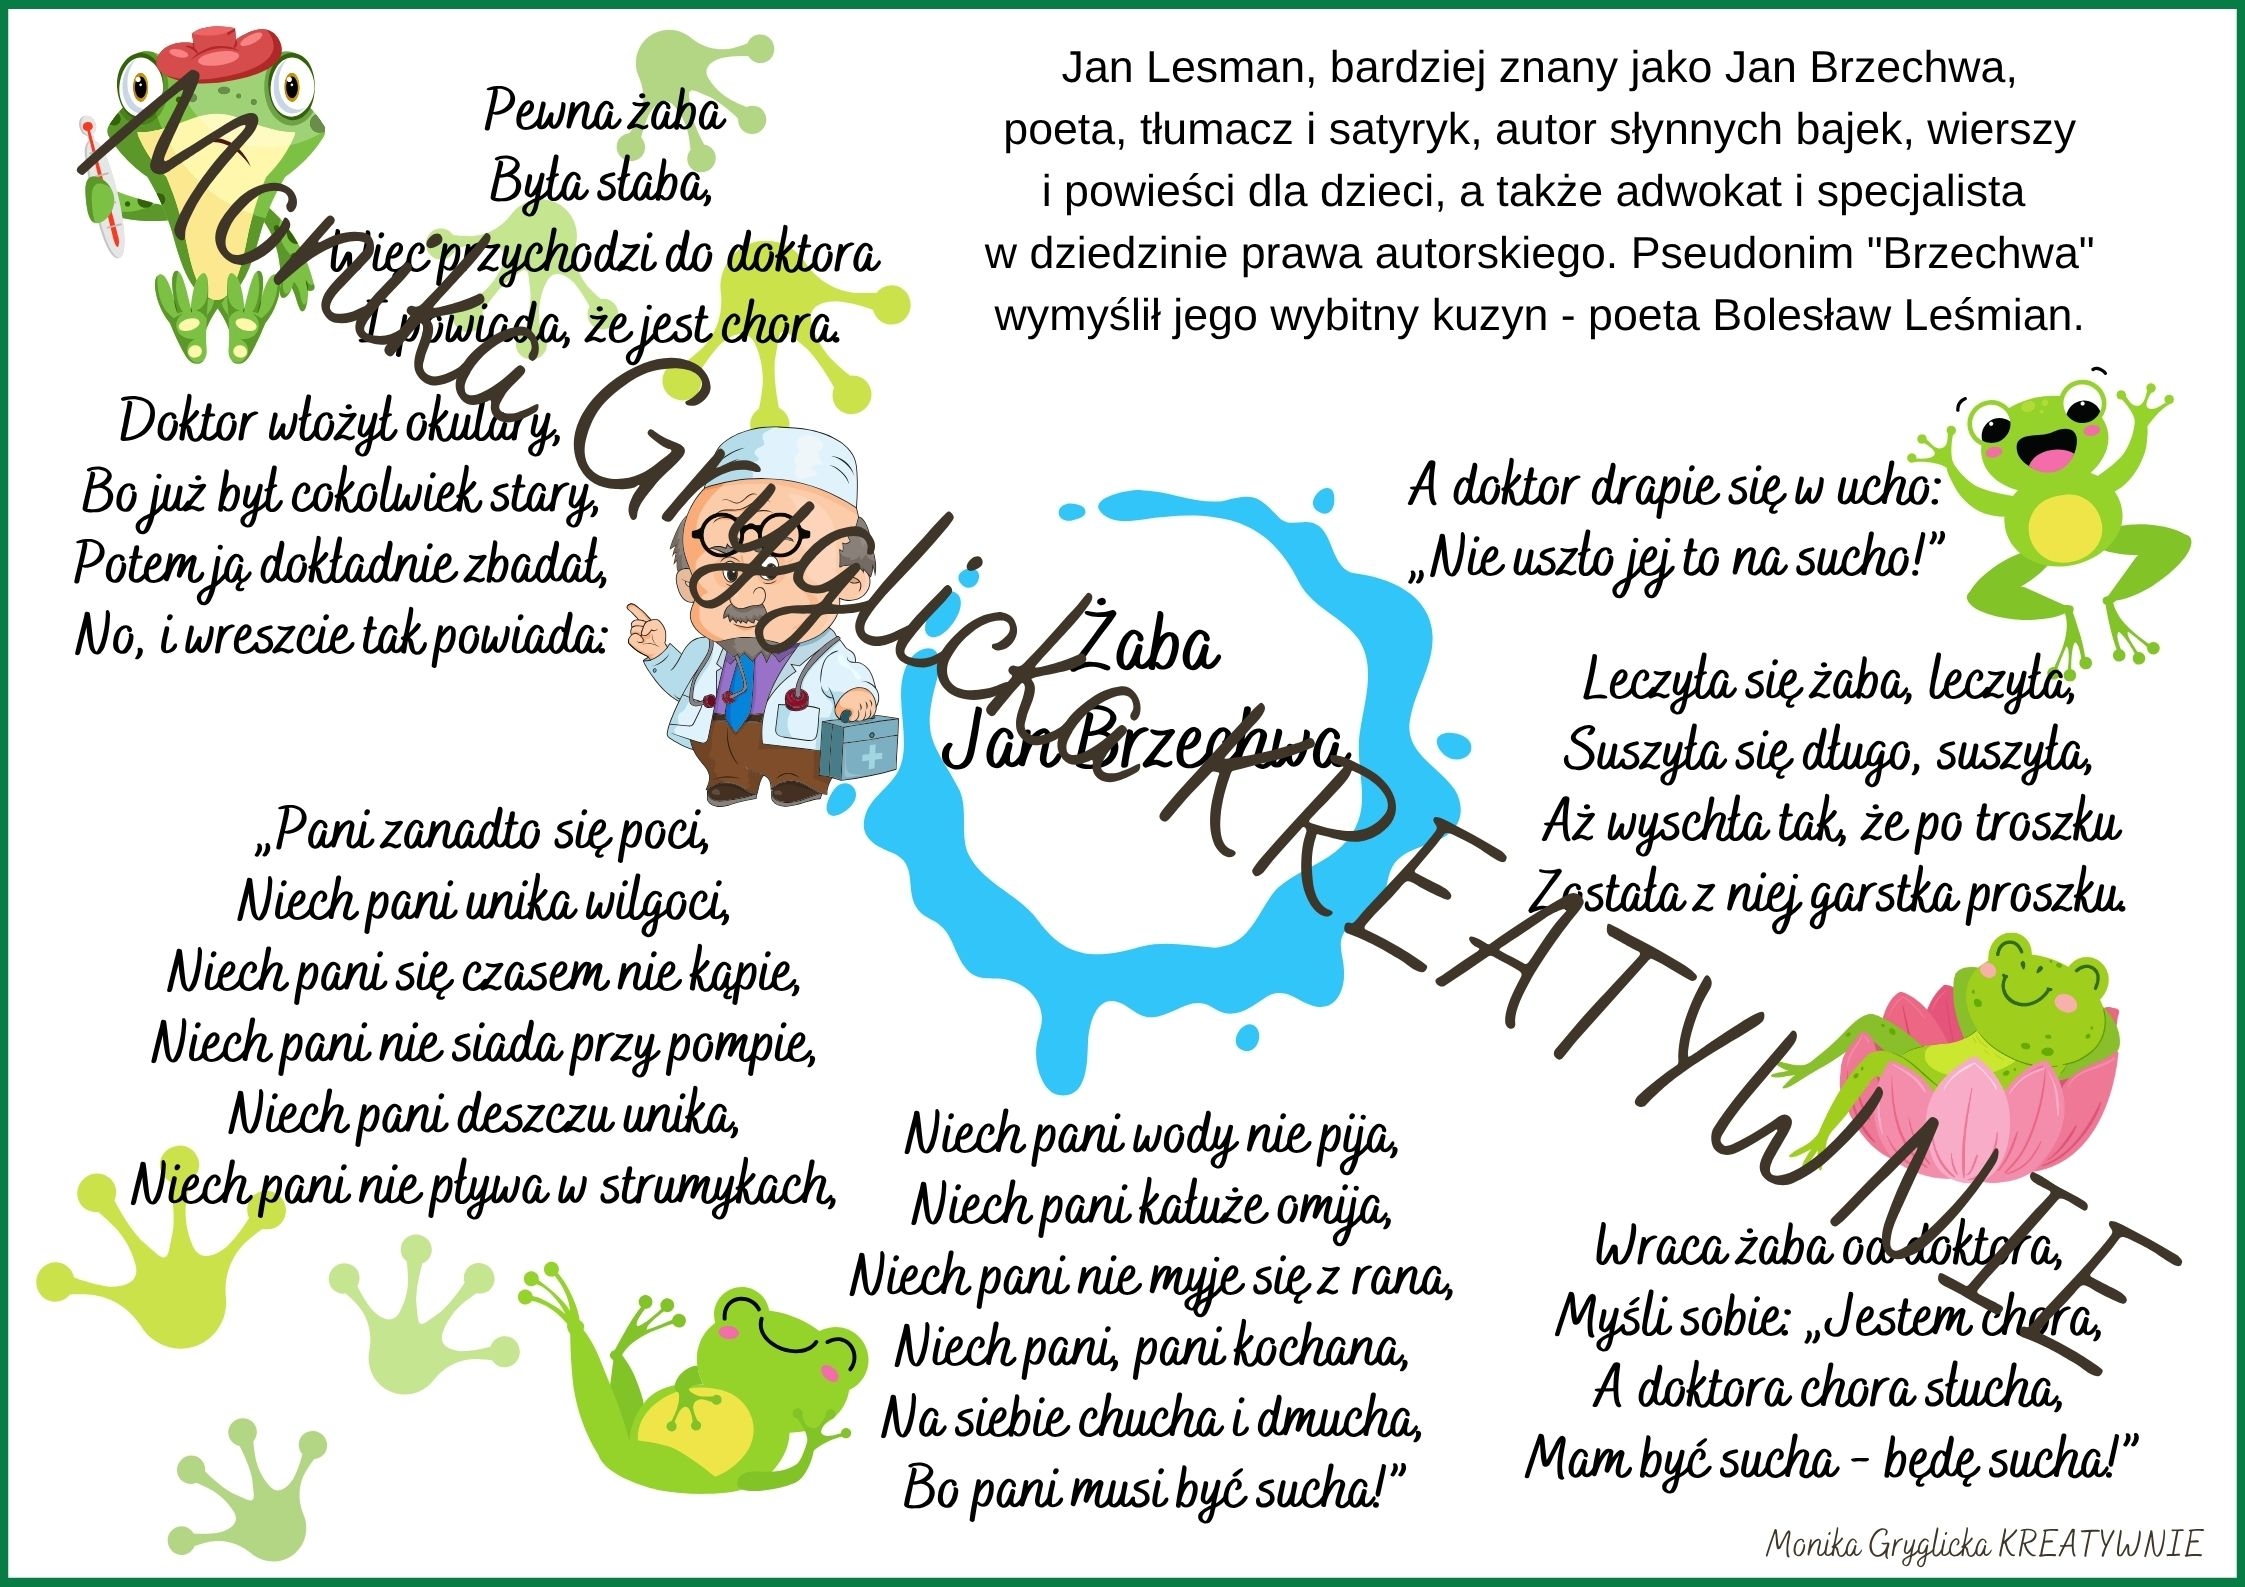 Jan Lesman, bardziej znany jako Jan Brzechwa,
poeta, tłumacz i satyryk, autor słynnych bajek, wierszy
i powieści dla dzieci, a także adwokat i specjalista
w dziedzinie prawa autorskiego. Pseudonim "Brzechwa"
wymyślił jego wybitny kuzyn - poeta Bolesław Leśmian.
Żaba
Jan Brzechwa
Pewna żaba
Była słaba,
Więc przychodzi do doktora
I powiada, że jest chora.
Doktor włożył okulary,
Bo już był cokolwiek stary,
Potem ją dokładnie zbadał,
No, i wreszcie tak powiada:
„Pani zanadto się poci,
Niech pani unika wilgoci,
Niech pani się czasem nie kąpie,
Niech pani nie siada przy pompie,
Niech pani deszczu unika,
Niech pani nie pływa w strumykach,
Niech pani wody nie pija,
Niech pani kałuże omija,
Niech pani nie myje się z rana,
Niech pani, pani kochana,
Na siebie chucha i dmucha,
Bo pani musi być sucha!”
Wraca żaba od doktora,
Myśli sobie: „Jestem chora,
A doktora chora słucha,
Mam być sucha - będę sucha!”
Leczyła się żaba, leczyła,
Suszyła się długo, suszyła,
Aż wyschła tak, że po troszku
Została z niej garstka proszku.
A doktor drapie się w ucho:
„Nie uszło jej to na sucho!”
Monika Gryglicka KREATYWNIE
Monika Gryglicka KREATYWNIE